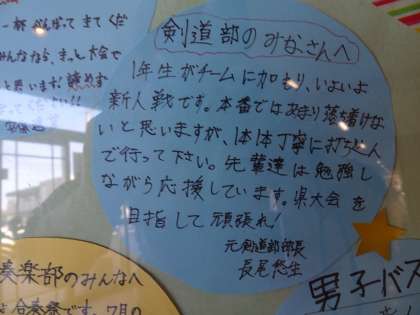 一杯がんばってきてくだ
みんななら、きっと大会で
と思いますが諦めず
剣道部のみなさんへ
1年生がチームに加わり、いよいよ
新人戦です。本番ではあまり落ち着けな
いと思いますが、1本1本丁寧に打ちこん
で行って下さい。先輩達は勉強し
ながら応援しています。県大会を
目指して頑張れ!
元剣道部部長
長尾悠生
奏楽部のみんなへ
合奏祭です。7月の
男子バス